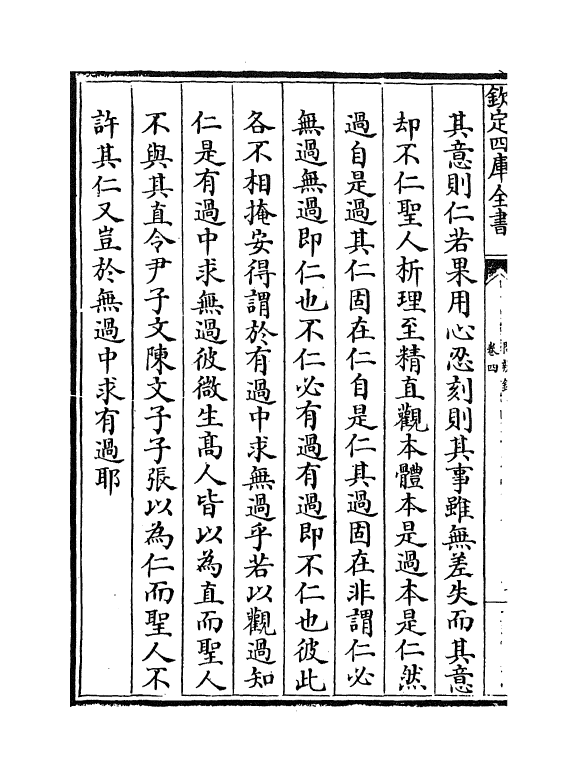 欽定四庫全書
卷四
其意則仁若果用心忍刻則其事雖無差失而其意
却不仁聖人析理至精直觀本體本是過本是仁然
過自是過其仁固在仁自是仁其過固在非謂仁必
無過無過即仁也不仁必有過有過即不仁也彼此
各不相掩安得謂於有過中求無過乎若以觀過知
仁是有過中求無過彼微生髙人皆以為直而聖人
不與其直令尹子文陳文子子張以為仁而聖人不
許其仁又豈於無過中求有過耶